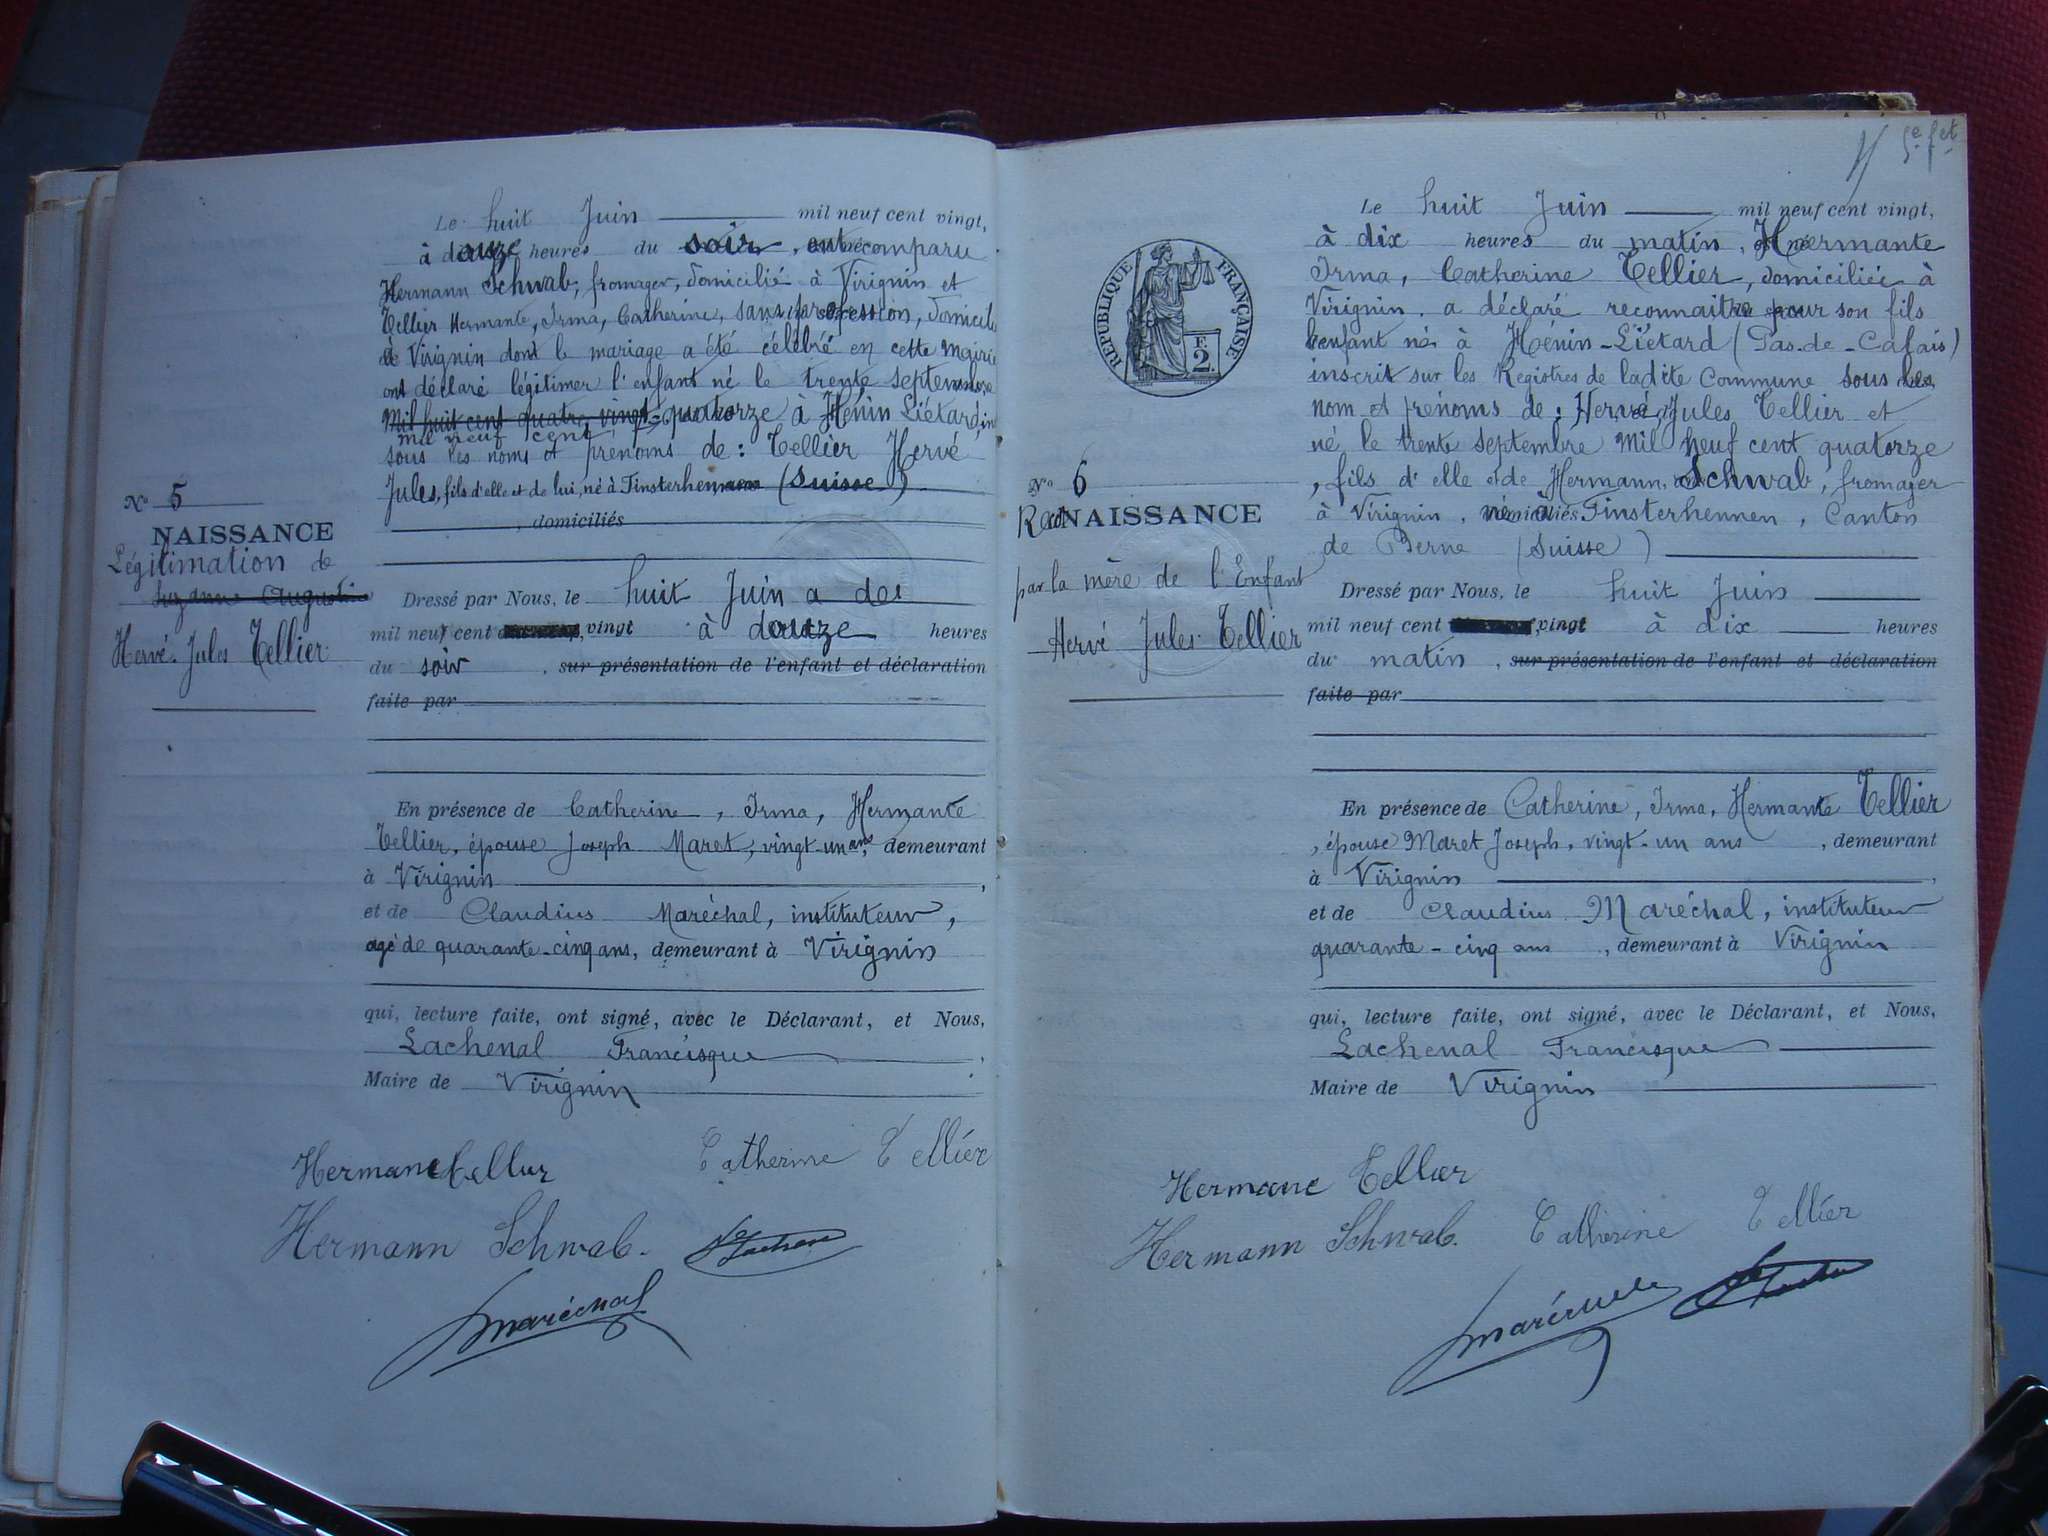 Le huit Juin mil neuf cent vingt,
à douze heures du soir, ont comparu
Hermann Schwab, fromager, domicilié à Virignin et
Tellier Hermante, Irma, Catherine, sans profession, domicili
à Virignin dont le mariage a été célébré en cette Mairie
ont déclaré légitimer l'enfant né le trente septembre
Mil huit cent quatre vingt quatorze à Hénin Liétard, in
mil neuf cent
sous les noms et prénoms de : Tellier Hervé
Jules, fils d'elle et de lui, né à Finsterhennen (Suisse)
, domiciliés
No 5
NAISSANCE
Légitimation de
Suzanne Augustine
Hervé Jules Tellier
Dressé par Nous, le huit Juin a des
mil neuf cent vingt à douze heures
du soir, sur présentation de l'enfant et déclaration
faite par
En présence de Catherine, Irma, Hermante
Tellier, épouse Joseph Maret, vingt-un ans, demeurant
à Virignin,
et de Claudius Maréchal, instituteur,
agé de quarante-cinq ans, demeurant à Virignin
qui, lecture faite, ont signé, avec le Déclarant, et Nous,
Lachenal Francisque,
Maire de Virignin
Hermane Tellier Catherine Tellier
Hermann Schwab.
Maréchal
5e fet
RÉPUBLIQUE FRANÇAISE
F.
2.
Le huit Juin mil neuf cent vingt,
à dix heures du matin, Hermante
Irma, Catherine Tellier, domiciliée à
Virignin. a déclaré reconnaitre pour son fils
l'enfant né à Hénin-Liétard (Pas-de-Calais)
inscrit sur les Registres de ladite Commune sous les
nom et prénoms de : Hervé Jules Tellier et
né le trente septembre Mil neuf cent quatorze
, fils d'elle et de Hermann Schwab, fromager
à Virignin, né à Finsterhennen, Canton
de Berne (Suisse)
No 6
NAISSANCE
par la mère de l'Enfant
Hervé Jules Tellier
Dressé par Nous, le huit Juin
mil neuf cent vingt à dix heures
du matin, sur présentation de l'enfant et déclaration
faite par
En présence de Catherine, Irma, Hermante Tellier
, épouse Maret Joseph, vingt-un ans, demeurant
à Virignin,
et de Claudius Maréchal, instituteur
quarante-cinq ans, demeurant à Virignin
qui, lecture faite, ont signé, avec le Déclarant, et Nous,
Lachenal Francisque
Maire de Virignin
Hermane Tellier
Hermann Schwab. Catherine Tellier
Maréchal